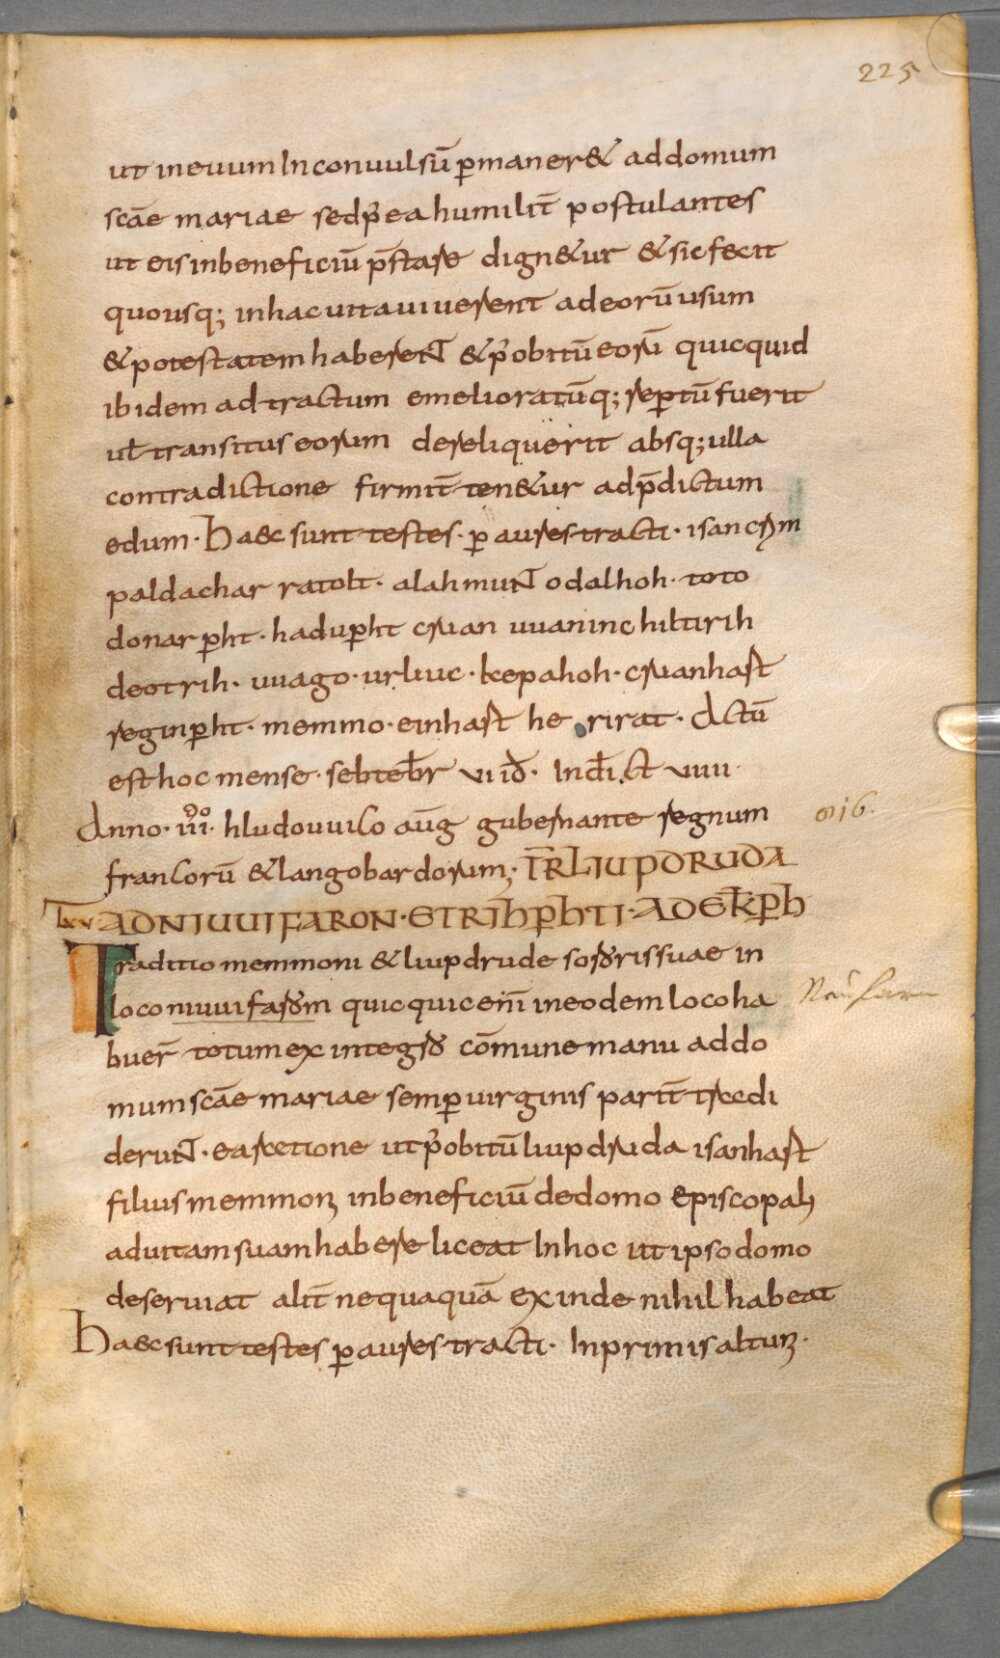 225
ut ineuum Inconuulsū p̄maner& addomum
scāe mariae sedp̄ea humilit̄ postulantes
ut eis inbeneficiū p̄stare dign&ur &sicfecit
quousq; inhacuitauiuerent adeorū usum
&potestatem haberent &p̄obitū eorū quicquid
ibidem adtractum emelioratūq; rep̄tū fuerit
ut̄ transitus eorum dereliquerit absq; ulla
contradictione firmit̄ ten&ur adp̄dictum
edum. Haec sunt testes. p̄ aures tracti. isancrym
paldachar ratolt. alahmunt odalhoh. toto
donarp̄ht. hadup̄ht cruan uuaninc hiltirih
deotrih. uuago. urliuc. kepahoh. cruanhart
reginp̄ht. memmo. einhart he rirat. Actū
est hoc mense. sebteb̄r vi iđ. Indic̄t viiii.
Anno. iii. hludouuico aūg gubernante regnum
francorū &langobardorum; T̄R LIUPDRUDA
AD NIUUIFARON. ET RIHP̄HTI. AD EKP̄H
Traditio memmoni &liupdrude sororis suae in
loco niuuifarom quicquic enī ineodem loco ha
buer̄ totum ex integro cōmune manu addo
mum scāe mariae semp̄ uirginis parit̄ tradi
derunt. ea ratione ut p̄obitū liupdruda isanhart
filius memmonis inbeneficiū dedomo episcopalis
aduitam suam habere liceat Inhoc ut ipso domo
deseruiat alit̄ nequaquā exinde nihil habeat
Haec sunt testes p̄ aures tracti. Inprimis altunis.
816.
Neufarn